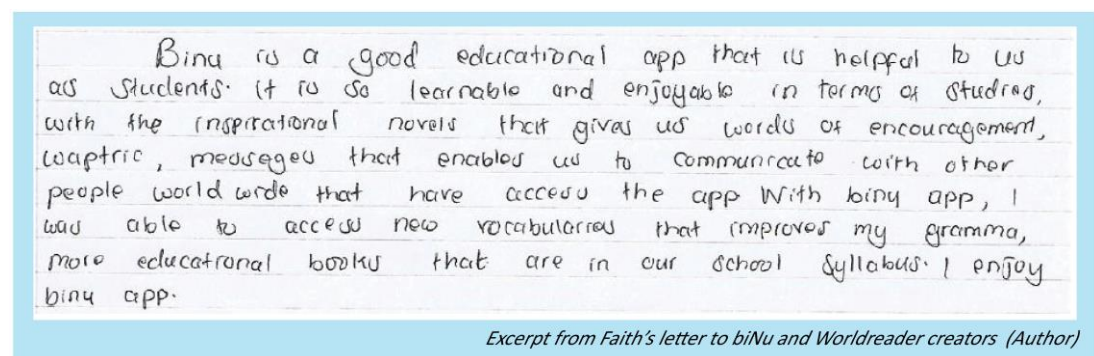 Binu is a good educational app that is helpful to us
as students. it is so learnable and enjoyable in terms of studies,
with the inspirational novels that gives us words of encouragement,
waptric, messeges that enables us to communicate with other
people world wide that have access the app With binu app, I
was able to access new vocabularies that improves my gramma,
more educational books that are in our school syllabus. I enjoy
binu app.
Excerpt from Faith's letter to biNu and Worldreader creators (Author)